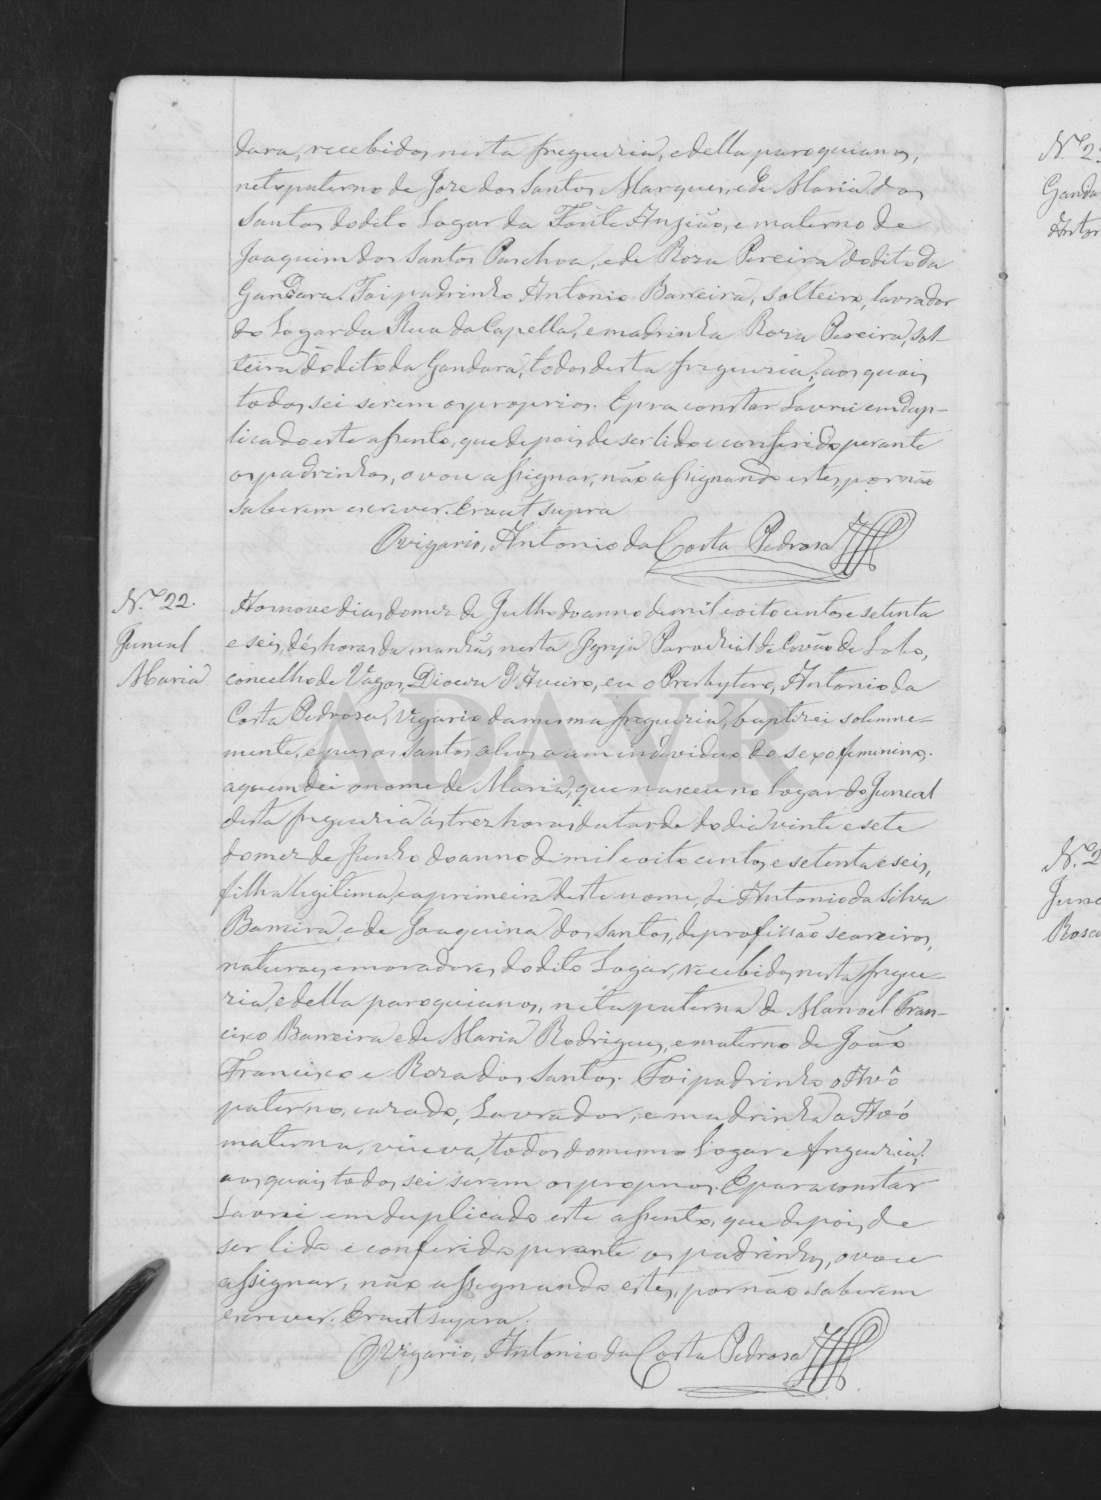 dara, recebidos nesta freguezia, e della paroquianos,
neto paterno de Joze dos Santos Marques, e de Maria dos
Santos do dito Logar da Fonte Anzião, e materno de
Joaquim dos Santos Paschoa, e de Roza Pereira do dito da
Gandara. Foi padrinho Antonio Barreira, solteiro, lavrador
do Logar da Rua da Capella, e madrinha Roza Pereira, sol-
teira do dito da Gandara, todos desta freguezia, aos quais
todos sei serem os proprios. E pra constar Lavrei em dup-
licado este assento, que depois de ser lido e conferido perante
os padrinhos, o vou assignar, não assignando estes, por não
saberem escrever. Era ut supra
O vigario, Antonio da Costa Pedrosa
N.º 22.
Juncal
Maria
Aos nove dias do mez de Julho do anno de mil e oito centos e setenta
e seis, dés horas da manhã, nesta Igreja Parochial de Covão do Lobo,
concelho de Vagos, Diocese d'Aveiro, eu o Presbytero, Antonio da
Costa Pedrosa, Vigario da mesma freguezia, baptizei solemne-
mente, e puz os santos oleos a um individuo do sexo femenino.
a quem dei o nome de Maria, que nasceu no Logar do Juncal
desta freguezia ás trez horas da tarde do dia vinte e sete
do mez de Junho do anno de mil e oito centos e setenta e seis,
filha legitima, e a primeira deste nome, de Antonio da Silva
Barreira, e de Joaquina dos Santos, de profissão seareiros,
naturaes e moradores do dito Logar, recebidos nesta fregue-
zia, e della paroquianos, neta paterna de Manoel Fran-
cisco Barreira e de Maria Rodrigues, e materno de João
Francisco e Roza dos Santos. Foi padrinho o Avô
paterno, cazado, Lavrador, e madrinha a Avó
materna, viuva, todos do mesmo Logar e freguezia,
aos quais todos sei serem os proprios. E para constar
Lavrei em duplicado este assento, que depois de
ser lido e conferido perante os padrinhos, o vou
assignar, não assignando estes, por não saberem
escrever. Era ut supra.
O Vigario, Antonio da Costa Pedrosa
ADAVR
Ganda
N.º 2
Junc
Rosa